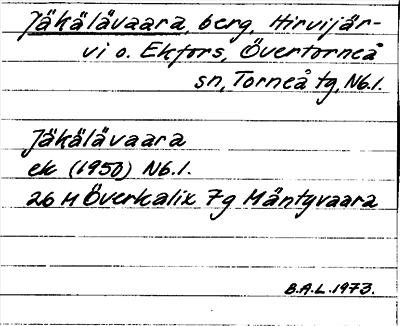 Jäkälävaara, berg, Hirvijär-
vi o. Ekfors, Övertorneå
sn, Torneå tg, Nb.l.
Jäkälävaara
ek (1950) Nb.l.
26 M Överkalix 7g Mäntyvaara
B.A.L. 1973.